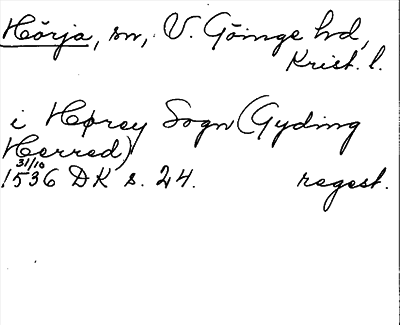 Hörja, sn, V. Göinge hd,
Krist. l.
i Hørey Sogn (Gyding
Herred)
31/10
1536 DK s. 24. regest.